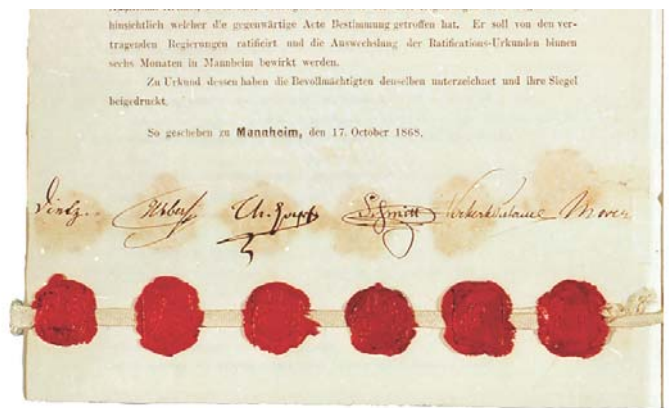 hinsichtlich welcher die gegenwärtige Acte Bestimmung getroffen hat. Er soll von den ver-
tragenden Regierungen ratificirt und die Auswechslung der Ratifications-Urkunden binnen
sechs Monaten in Mannheim bewirkt werden.
Zu Urkund dessen haben die Bevollmächtigten denselben unterzeichnet und ihre Siegel
beigedruckt.
So geschehen zu Mannheim, den 17. October 1868.
Dietz. Weber Schmitt